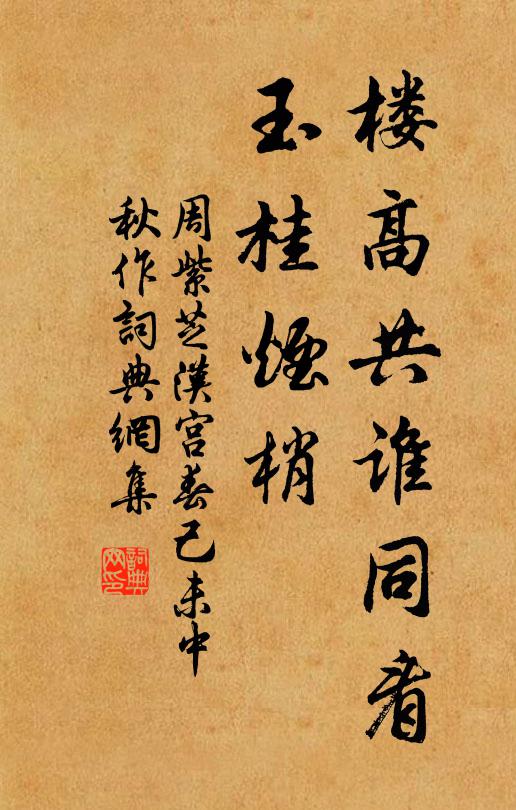 楼高共谁同看
玉桂煙梢
周紫芝漢宮春己未中
秋作詞典網集
詞典
网印